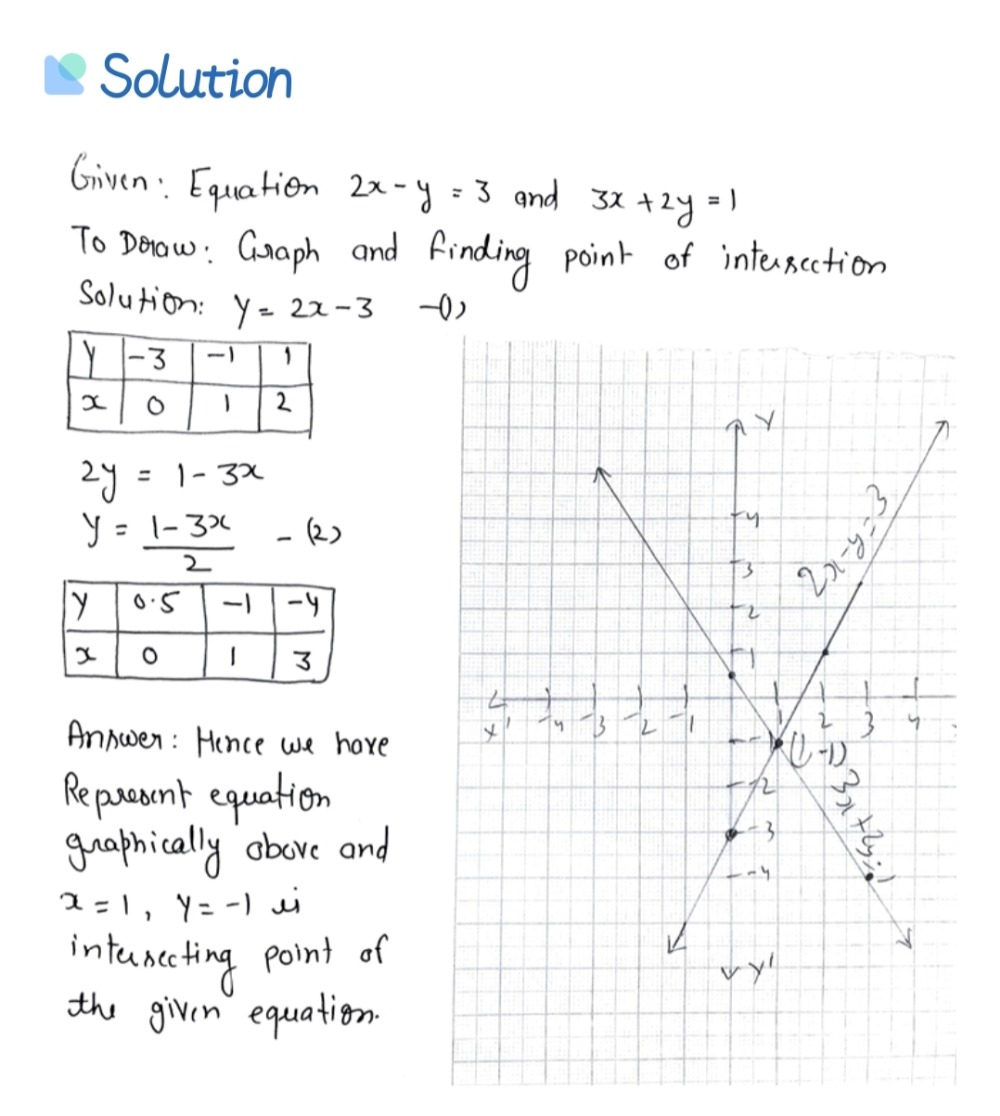 Solution
Given: Equation 2x - y = 3 and 3x + 2y = 1
To Draw: Graph and finding point of intersection
Solution: y = 2x - 3 -(1)
Y -3 -1 1
x 0 1 2
2y = 1 - 3x
y = 1 - 3x / 2 - (2)
Y 0.5 -1 -4
x 0 1 3
Answer: Hence we have
Represent equation
graphically above and
x = 1, y = -1 is
intersecting point of
the given equation.
Y
4
3
2
1
x' -4 -3 -2 -1 1 2 3 4
-1
-2
-3
-4
Y'
2x-y=3
(1,-1)
3x+2y=1